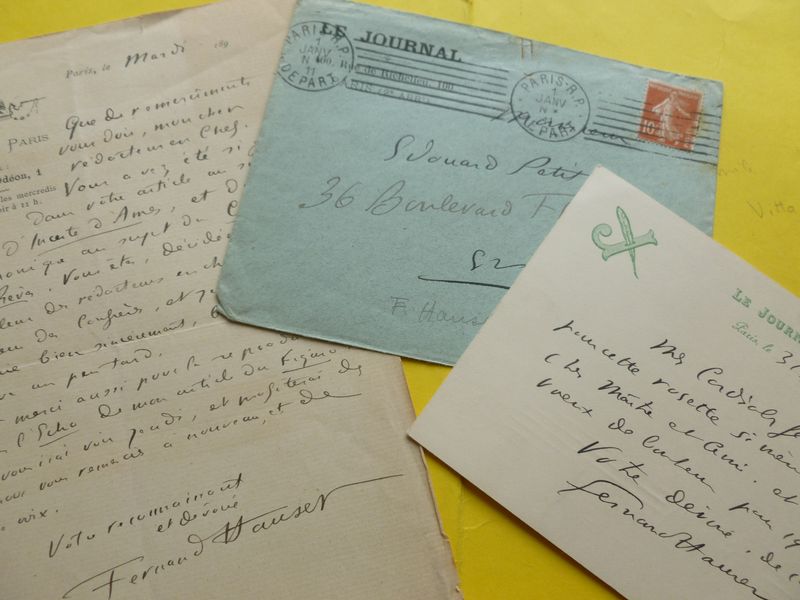 Paris, le Mardi 189
PARIS
déon, 1
les mercredis
oir à 11 h.
Que de remerciements
vous dois, mon cher
rédacteur en chef.
Vous avez été si
Dans votre article au su
d'Inceste d'Ames, et d
onique au sujet du C
Vous êtes, décidé
leur des rédacteurs en ch
bien sincèrement,
un peu tard.
merci aussi pour la reprodu
l'Echo de mon article du Figaro
vous irai voir jeudi, et profiterai de
pour vous remercier à nouveau, et de
voix.
Votre reconnaissant
et dévoué
Fernand Hauser
LE JOURNAL
100, Rue de Richelieu, 100
PARIS R.P.
1
JANV
11
DEPART
PARIS R.P.
1
JANV
DEPART
10
Monsieur
Edouard Petit
36 Boulevard F
F. Haus
LE JOURN
Paris le 31
Mes cordiales
pour cette rosette si
Cher Maître et Ami, et
vœux de bonheur pour 19
Votre dévoué, de
Fernand Hauser